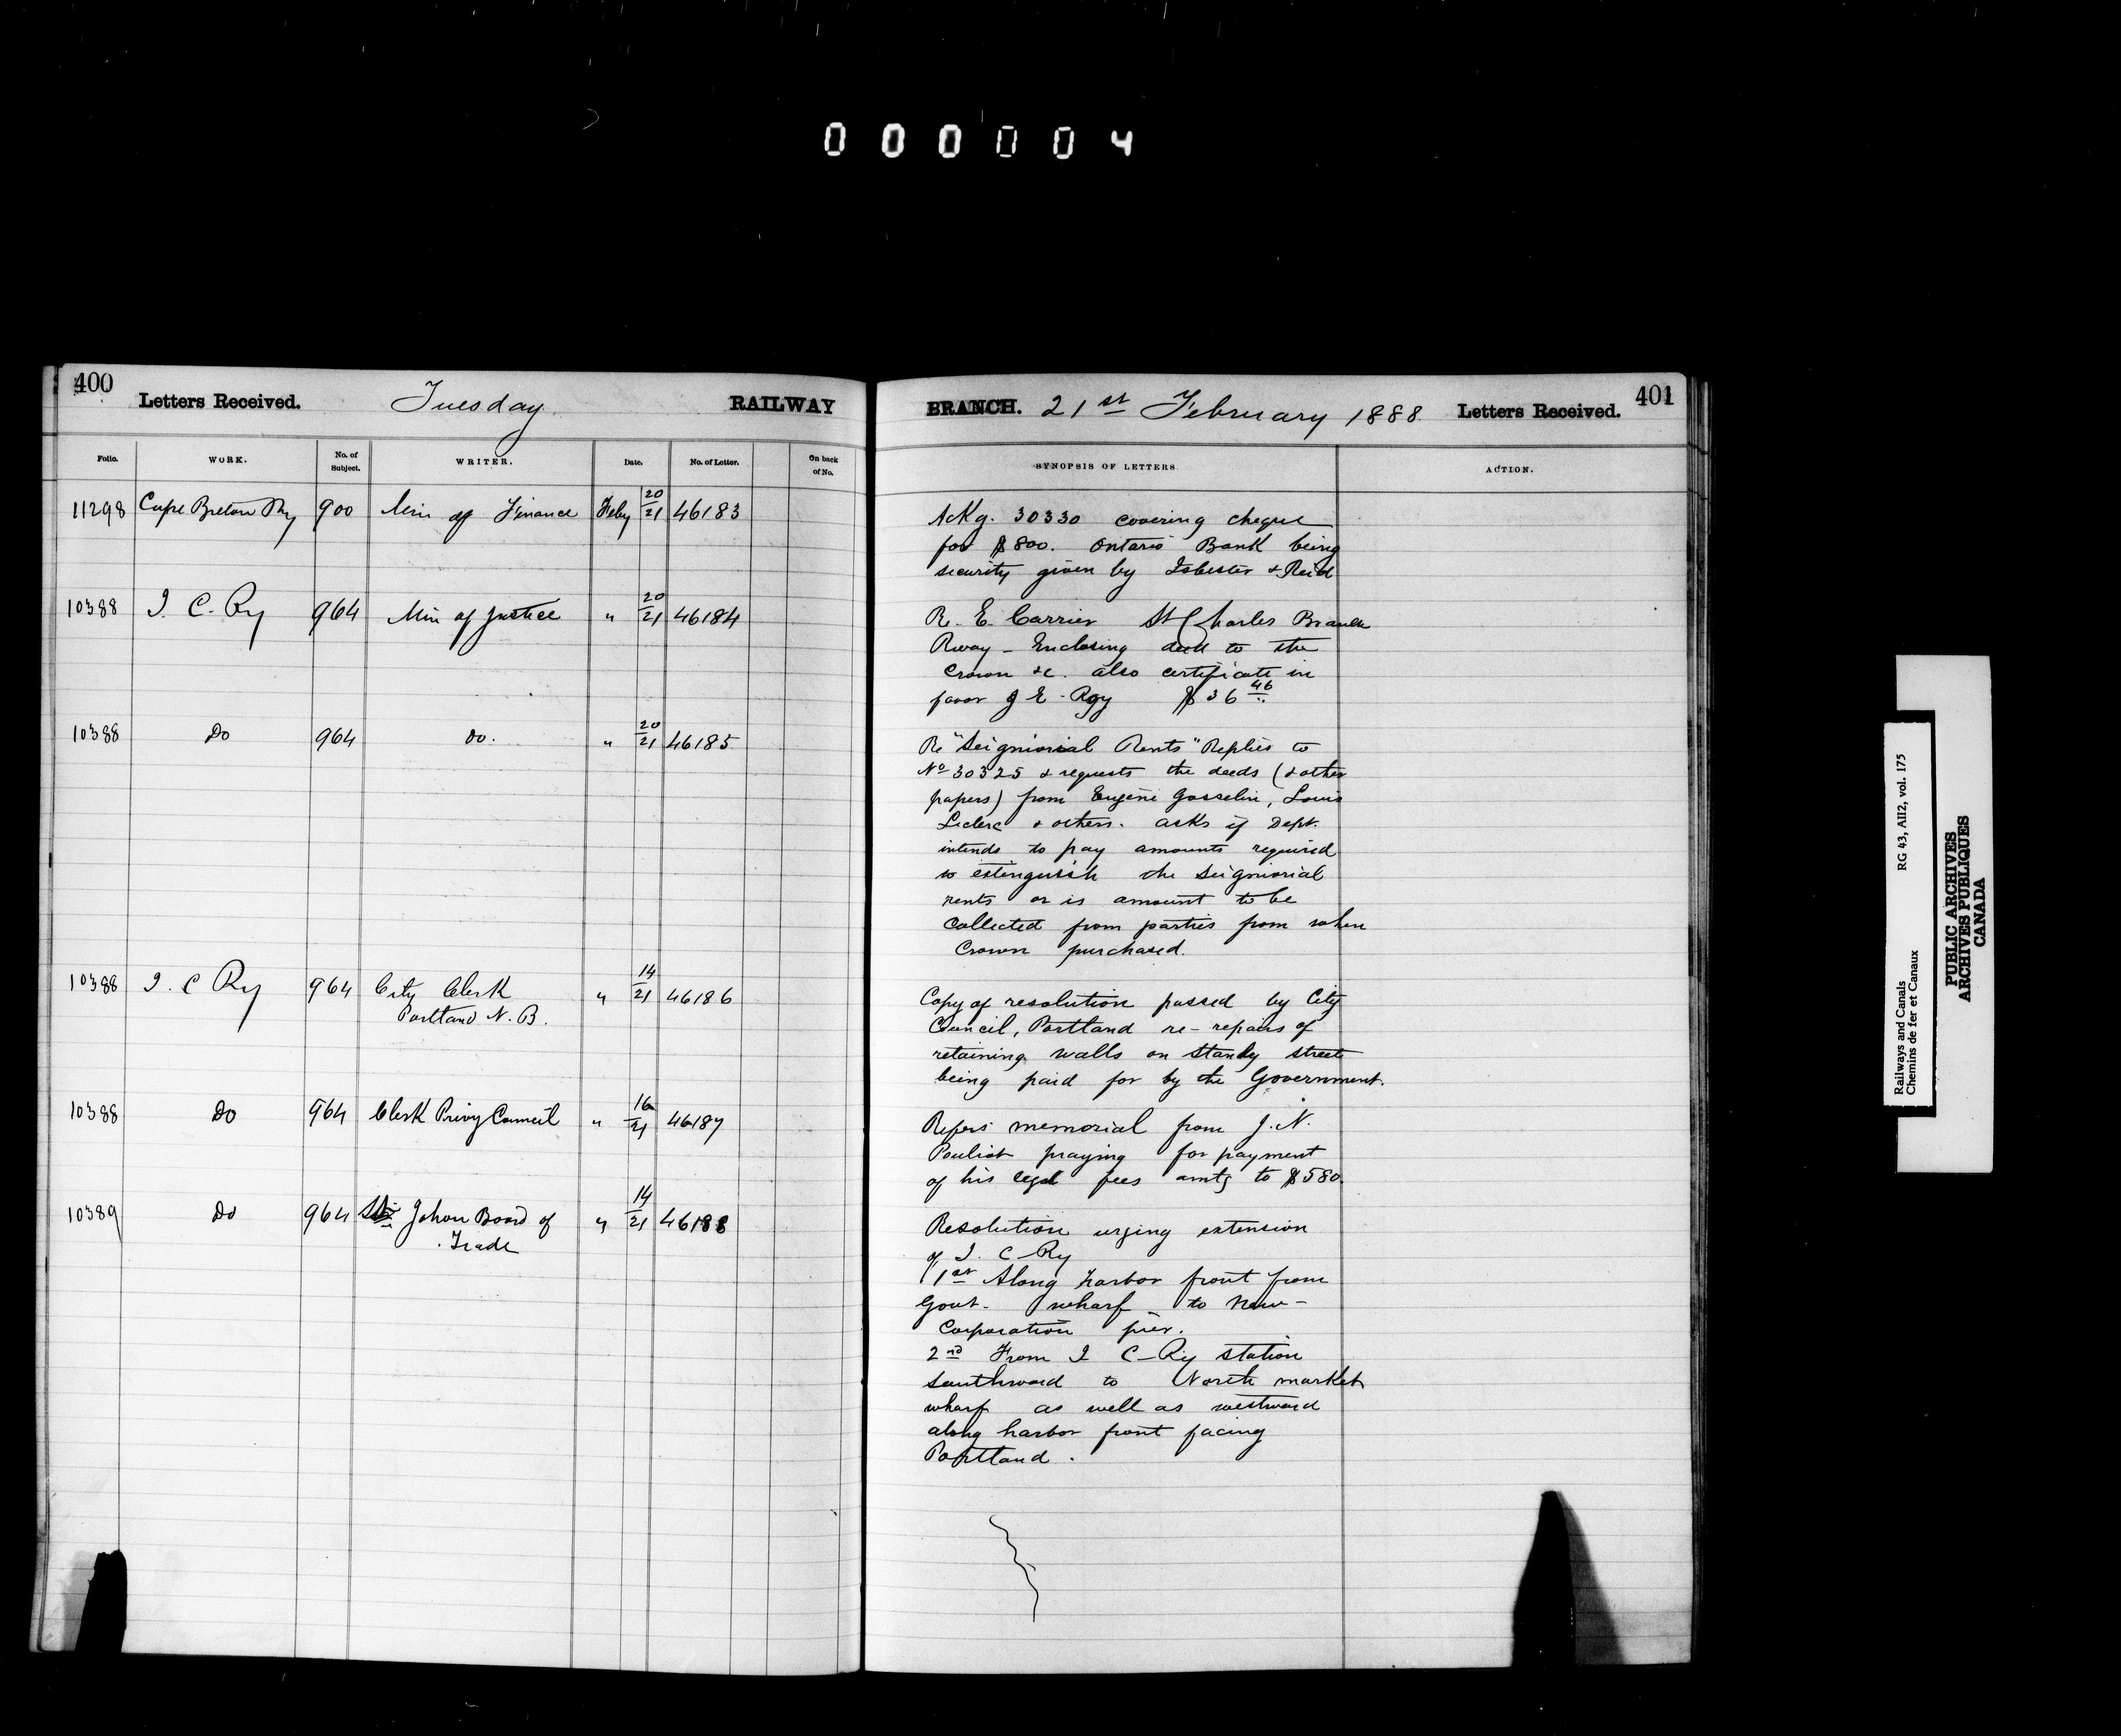 0 0 0 0 0 4
400
Letters Received. Tuesday RAILWAY
Folio. WORK. No. of Subject. WRITER. Date. No. of Letter. On back of No.
11298 Cape Breton Ry 900 Min of Finance Feby 20/21 46183
10388 I. C. Ry 964 Min of Justice " 20/21 46184
10388 Do 964 Do. " 20/21 46185
10388 I. C Ry 964 City Clerk " 14/21 46186
Portland N. B.
10388 Do 964 Clerk Privy Council " 16/21 46187
10389 Do 964 St. Johon Board of " 14/21 46188
Trade
BRANCH. 21st February 1888. Letters Received. 401
SYNOPSIS OF LETTERS. ACTION.
Ackg. 30330 covering cheque
for $800. Ontario Bank being
security given by Isbester & Reid
Re. E. Carrier St Charles Branch
Rway - Enclosing deed to the
Crown &c. also certificate in
favor J E. Roy $36 46
Re "Seigniorial Rents" Replies to
No 30325 & requests the deeds (& other
papers) from Eugene Gosselin, Louis
Leclerc & others. asks if Dept.
intends to pay amounts required
to extinguish the Seigniorial
rents or is amount to be
collected from parties from when
Crown purchased.
Copy of resolution passed by City
Council, Portland re- repairs of
retaining walls on Standy street
being paid for by the Government.
Refers memorial from J. N.
Pouliot praying for payment
of his legal fees amtg to $580.
Resolution urging extension
of I. C Ry
1st Along harbor front from
Govt. wharf to New-
Corporation pier.
2nd From I C-Ry station
Southward to North market
wharf as well as westward
along harbor front facing
Portland.
Railways and Canals RG 43, AII2, vol. 175
Chemins de fer et Canaux
PUBLIC ARCHIVES
ARCHIVES PUBLIQUES
CANADA